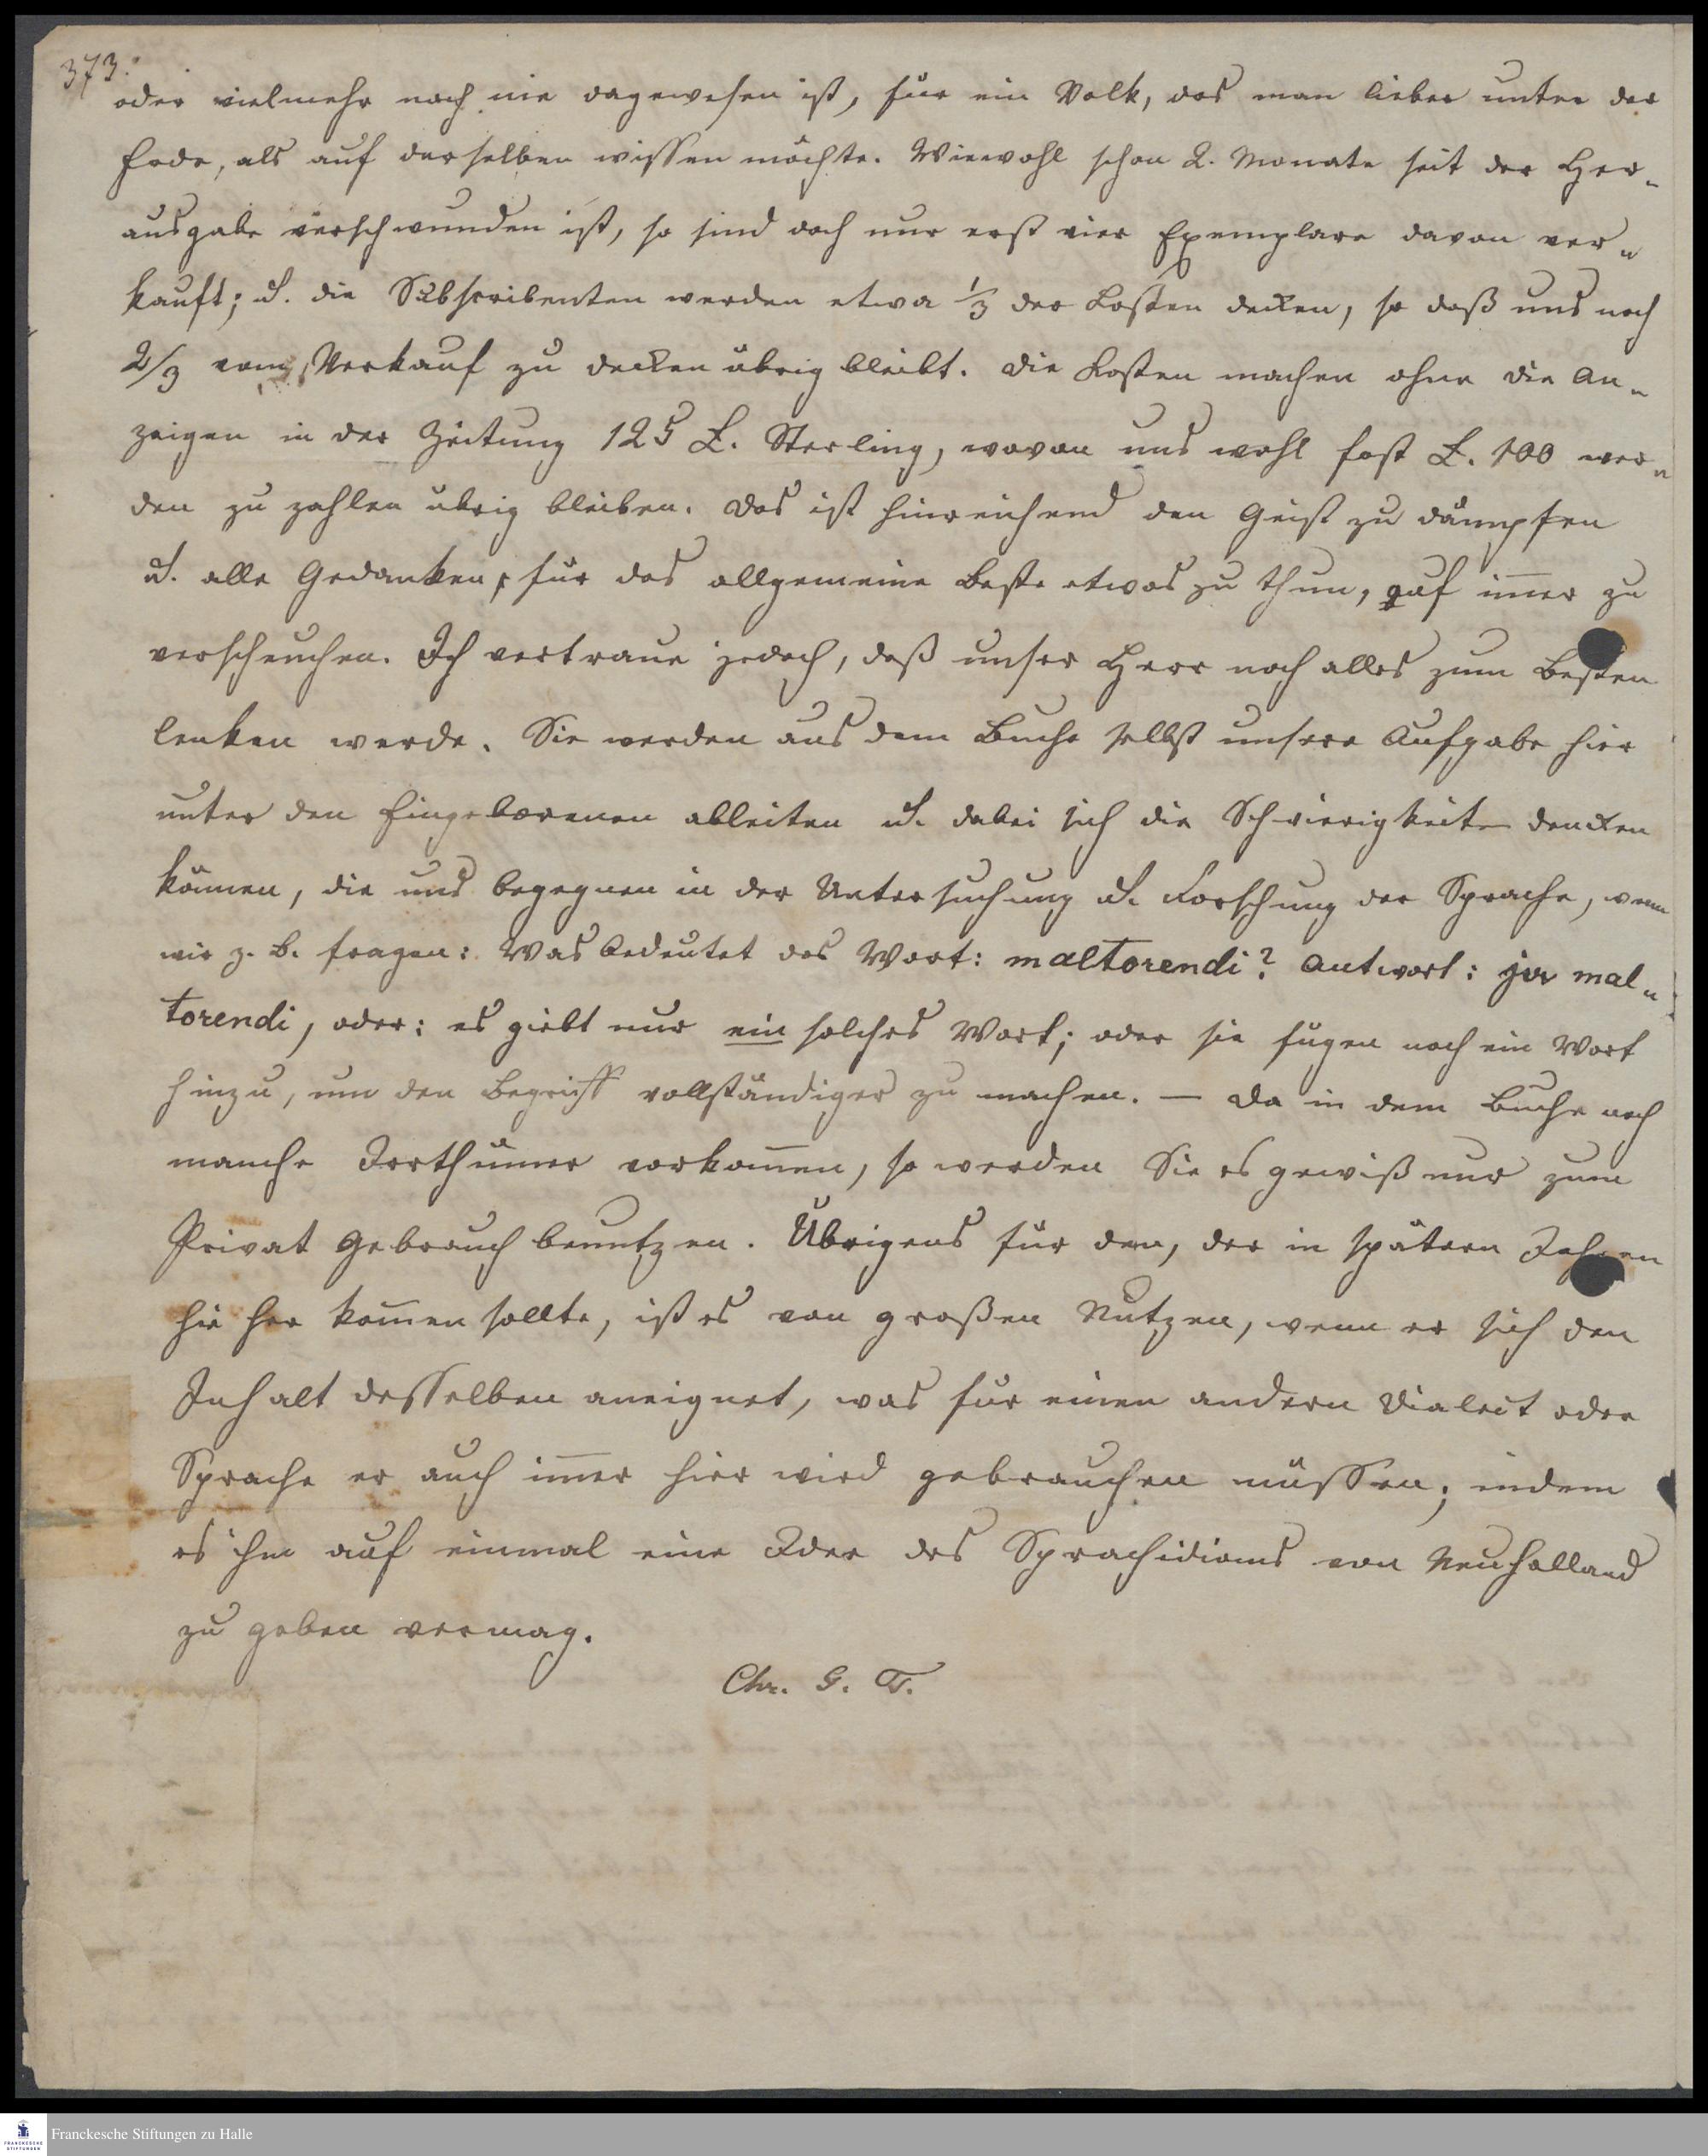 373.
oder vielmehr noch nie dagewesen ist, für ein Volk, das man lieber unter der
Erde, als auf derselben wissen möchte. Wiewohl schon 2. Monate seit der Her-
ausgabe verschwunden ist, so sind doch nur erst vier Exemplare davon ver-
kauft; u. die Subscribenten werden etwa 1/3 der Kosten decken, so daß uns noch
2/3 vom Verkauf zu decken übrig bleibt. Die Kosten machen ohne die An-
zeigen in der Zeitung 125 £. Sterling, wovon uns wohl fast £. 100 wer-
den zu zahlen übrig bleiben. Das ist hinreichend den Geist zu dämpfen
u. alle Gedanken, für das allgemeine Beste etwas zu thun, auf im̅er zu
verscheuchen. Ich vertraue jedoch, daß unser Herr noch alles zum Besten
lenken werde. Sie werden aus dem Buche selbst unsere Aufgabe hier
unter den Eingeborenen ableiten u. dabei sich die Schwierigkeiten dencken
können, die uns begegnen in der Untersuchung u. Forschung der Sprache, wenn
wir z. B. fragen: Was bedeutet das Wort: maltorendi? Antwort: ja mal-
torendi, oder: es giebt nur ein solches Wort; oder sie fügen noch ein Wort
hinzu, um den Begriff vollständiger zu machen. — Da in dem Buche noch
manche Irrthümer vorkom̅en, so werden Sie es gewiß nur zum
Privat Gebrauch benutzen. Übrigens für den, der in spätern Jahren
hie her kom̅en sollte, ist es von großen Nutzen, wenn er sich den
Inhalt desselben aneignet, was für einen andern Dialect oder
Sprache er auch im̅er hier wird gebrauchen müssen; indem
es ihm auf einmal eine Idee des Sprachidioms von Neuholland
zu geben vermag.
Chr. G. T.
Franckesche Stiftungen zu Halle
FRANCKESCHE
STIFTUNGEN